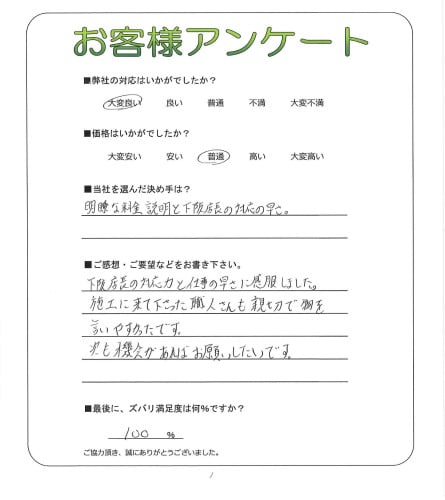 お客様アンケート
■弊社の対応はいかがでしたか？
大変良い 良い 普通 不満 大変不満
■価格はいかがでしたか？
大変安い 安い 普通 高い 大変高い
■当社を選んだ決め手は？
明瞭な料金説明と下阪店長の対応の早さ。
■ご感想・ご要望などをお書き下さい。
下阪店長の対応力と仕事の早さに感服しました。
施工に来て下さった職人さんも親切で物を
言いやすかったです。
次も機会があればお願いしたいです。
■最後に、ズバリ満足度は何%ですか？
100 %
ご協力頂き、誠にありがとうございました。